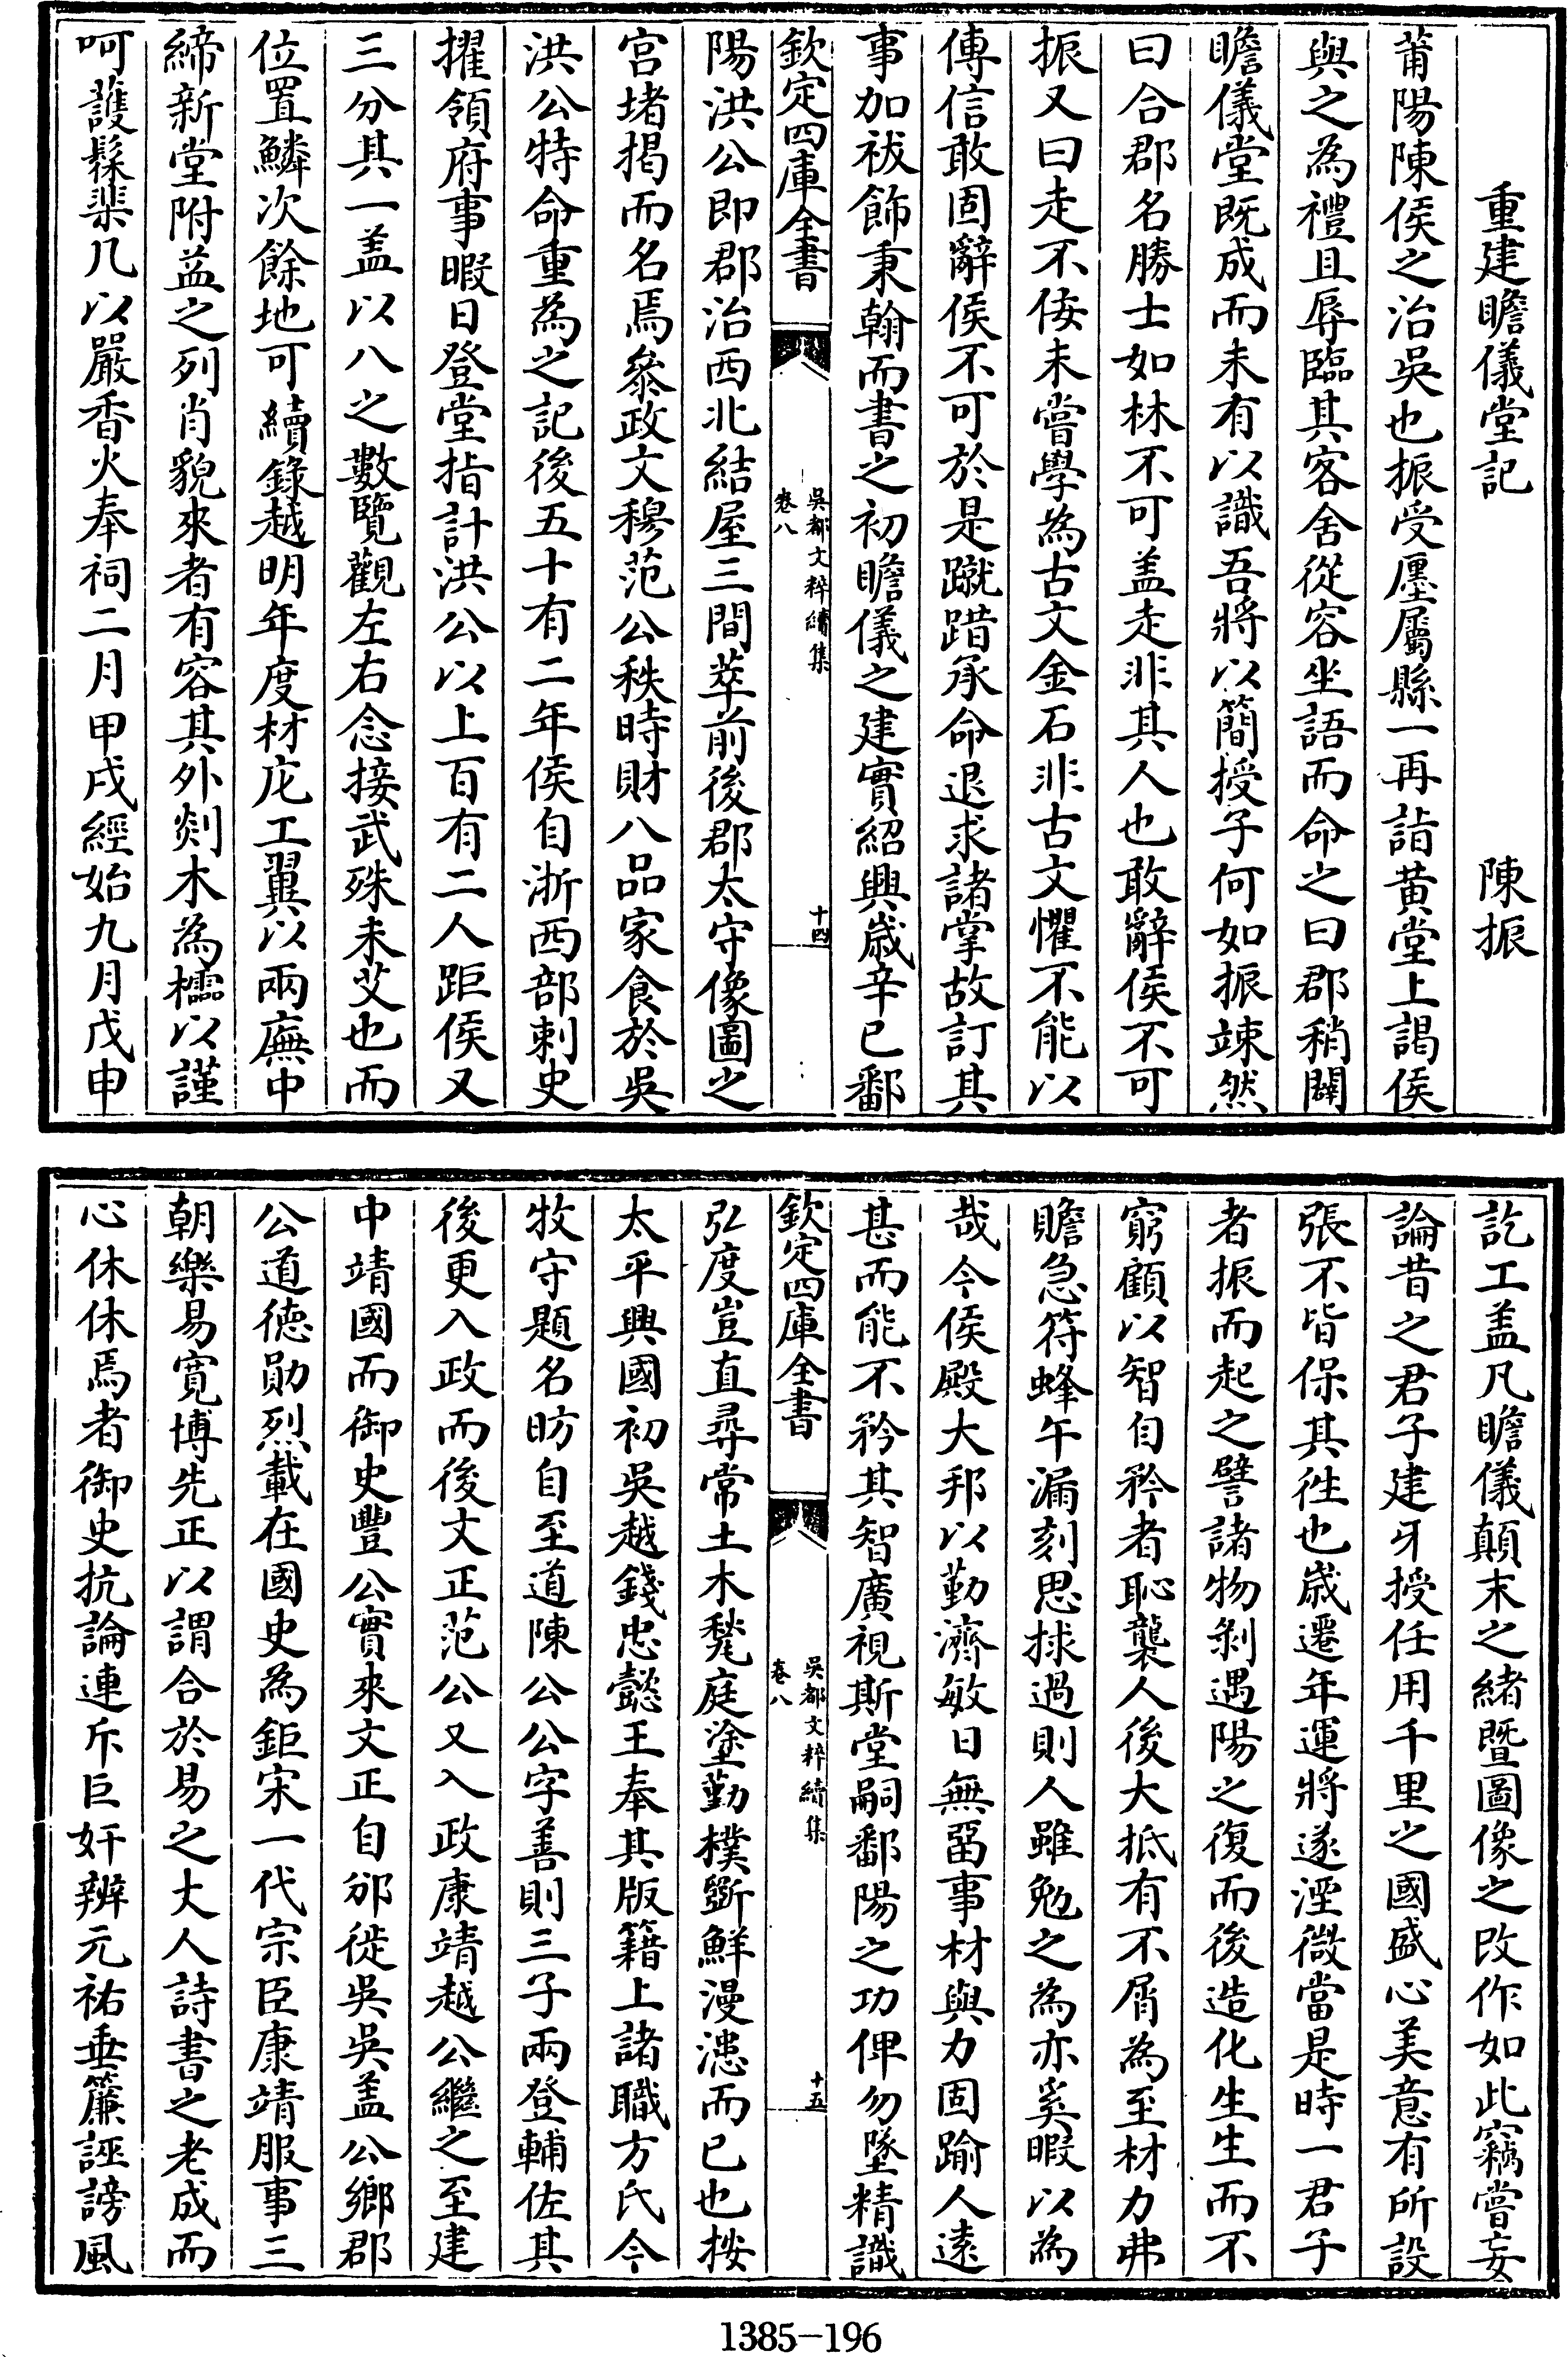 重建瞻儀堂記　陳振
莆陽陳侯之治吳也振受廛屬縣一再詣黄堂上謁侯
與之為禮且辱臨其客舍從容坐語而命之曰郡稍闢
瞻儀堂既成而未有以識吾將以簡授子何如振竦然
曰合郡名勝士如林不可盖走非其人也敢辭侯不可
振又曰走不佞未嘗學為古文金石非古文懼不能以
傳信敢固辭侯不可於是蹴踖承命退求諸掌故訂其
事加袚飾秉翰而書之初瞻儀之建實紹興歲辛巳鄱
欽定四庫全書
吳都文粹續集
卷八
十四
陽洪公即郡治西北結屋三間萃前後郡太守像圖之
宫堵揭而名焉叅政文穆范公秩時財八品家食於吳
洪公特命重為之記後五十有二年侯自浙西部刺史
擢領府事暇日登堂指計洪公以上百有二人距侯又
三分其一盖以八之數覽觀左右念接武殊未艾也而
位置鱗次餘地可續錄越明年度材庀工翼以兩廡中
締新堂附益之列肖貌來者有容其外剡木為櫺以謹
呵護髹棐几以嚴香火奉祠二月甲戌經始九月戊申
訖工盖凡瞻儀顛末之緒暨圖像之改作如此竊嘗妄
論昔之君子建牙授任用千里之國盛心美意有所設
張不皆保其徃也歲遷年運將遂湮微當是時一君子
者振而起之譬諸物剝遇陽之復而後造化生生而不
窮顧以智自矜者恥襲人後大抵有不屑為至材力弗
贍急符蜂午漏刻思捄過則人雖勉之為亦奚暇以為
哉今侯殿大邦以勤濟敏日無畱事材與力固踰人遠
甚而能不矜其智廣視斯堂嗣鄱陽之功俾勿墜精識
欽定四庫全書
吳都文粹續集
卷八
十五
弘度豈直尋常土木甃庭塗勤樸斲鮮漫漶而已也按
太平興國初吳越錢忠懿王奉其版籍上諸職方氏今
牧守題名昉自至道陳公公字善則三子兩登輔佐其
後更入政而後文正范公又入政康靖越公繼之至建
中靖國而御史豐公實來文正自邠徙吳吳盖公鄉郡
公道德勛烈載在國史為鉅宋一代宗臣康靖服事三
朝樂易寛博先正以謂合於易之丈人詩書之老成而
心休休焉者御史抗論連斥巨奸辨元祐垂簾誣謗風
1385-196